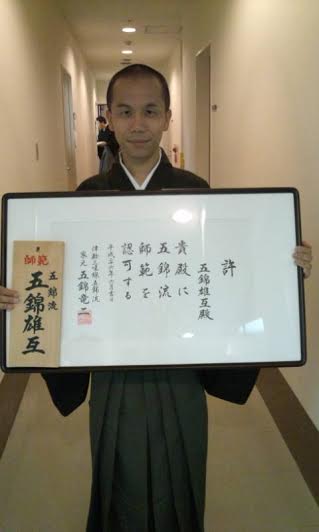 許
五錦雄互殿
貴殿に
五錦流
師範を
認可する
平成
津軽三味線五錦流
家元 五錦竜二
師範
五錦流
五錦雄互